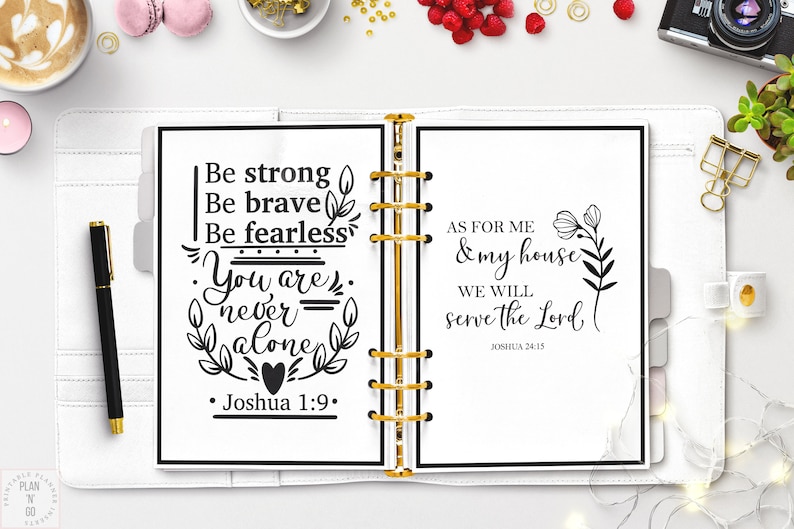 Be strong
Be brave
Be fearless
You are
never
alone
Joshua 1:9
AS FOR ME
& my house
WE WILL
serve the Lord,
JOSHUA 24:15
PRINTABLE PLANNER INSERTS
PLAN
'N'
GO